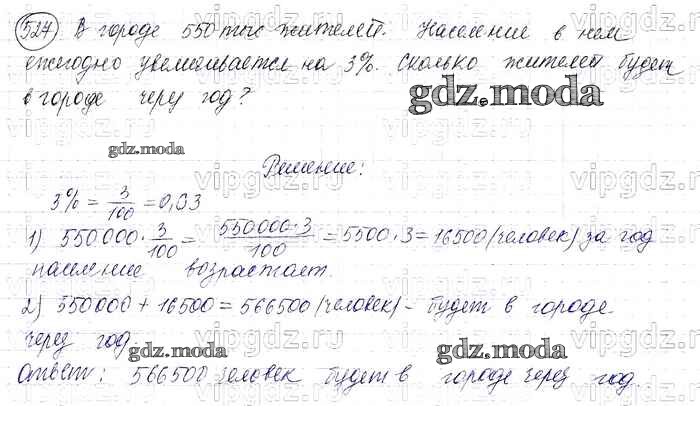 527 В городе 550 тыс жителей. Население в нем
ежегодно увеличивается на 3%. Сколько жителей будет
в городе через год?
gdz.moda
gdz.moda
Решение:
3% = 3/100 = 0,03
1) 550000 · 3/100 = 550000·3/100 = 5500·3 = 16500 (человек) за год
население возрастает.
2) 550000 + 16500 = 566500 (человек) - будет в городе
через год.
gdz.moda
gdz.moda
Ответ: 566500 человек будет в городе через год.
vipgdz.ru